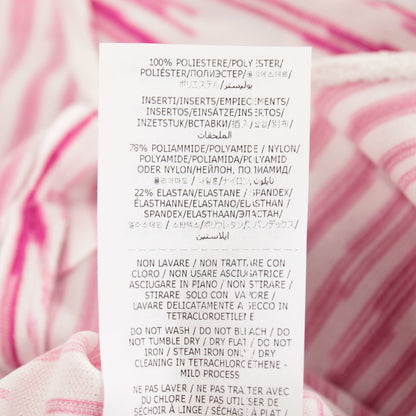 100% POLIESTERE/POLYESTER/
POLIÉSTER/ПОЛИЭСТЕР/폴리에스테르/
ポリエステル/بوليستر
INSERTI/INSERTS/EMPIECEMENTS/
INSERTOS/EINSÄTZE/INSERTOS/
INZETSTUK/ВСТАВКИ/插入/삽입/別布/
الملحقات
78% POLIAMMIDE/POLYAMIDE / NYLON/
POLYAMIDE/POLIAMIDA/POLYAMID
ODER NYLON/НЕЙЛОН, ПОЛИАМИД/
폴리아마드 / 나일론/ナイロン/ نايلون
22% ELASTAN/ELASTANE / SPANDEX/
ÉLASTHANNE/ELASTANO/ELASTHAN /
SPANDEX/ELASTHAAN/ЭЛАСТАН/
스판덱스/ポリウレタン/スパンデックス/
ايلاستين
NON LAVARE / NON TRATTARE CON
CLORO / NON USARE ASCIUGATRICE /
ASCIUGARE IN PIANO / NON STIRARE /
STIRARE SOLO CON VAPORE /
LAVARE DELICATAMENTE A SECCO IN
TETRACLOROETILENE
DO NOT WASH / DO NOT BLEACH / DO
NOT TUMBLE DRY / DRY FLAT / DO NOT
IRON / STEAM IRON ONLY / DRY
CLEANING IN TETRACHLOROETHILENE -
MILD PROCESS
NE PAS LAVER / NE PAS TRAITER AVEC
DU CHLORE / NE PAS UTILISER DE
SÉCHOIR À LINGE / SÉCHAGE À PLAT /